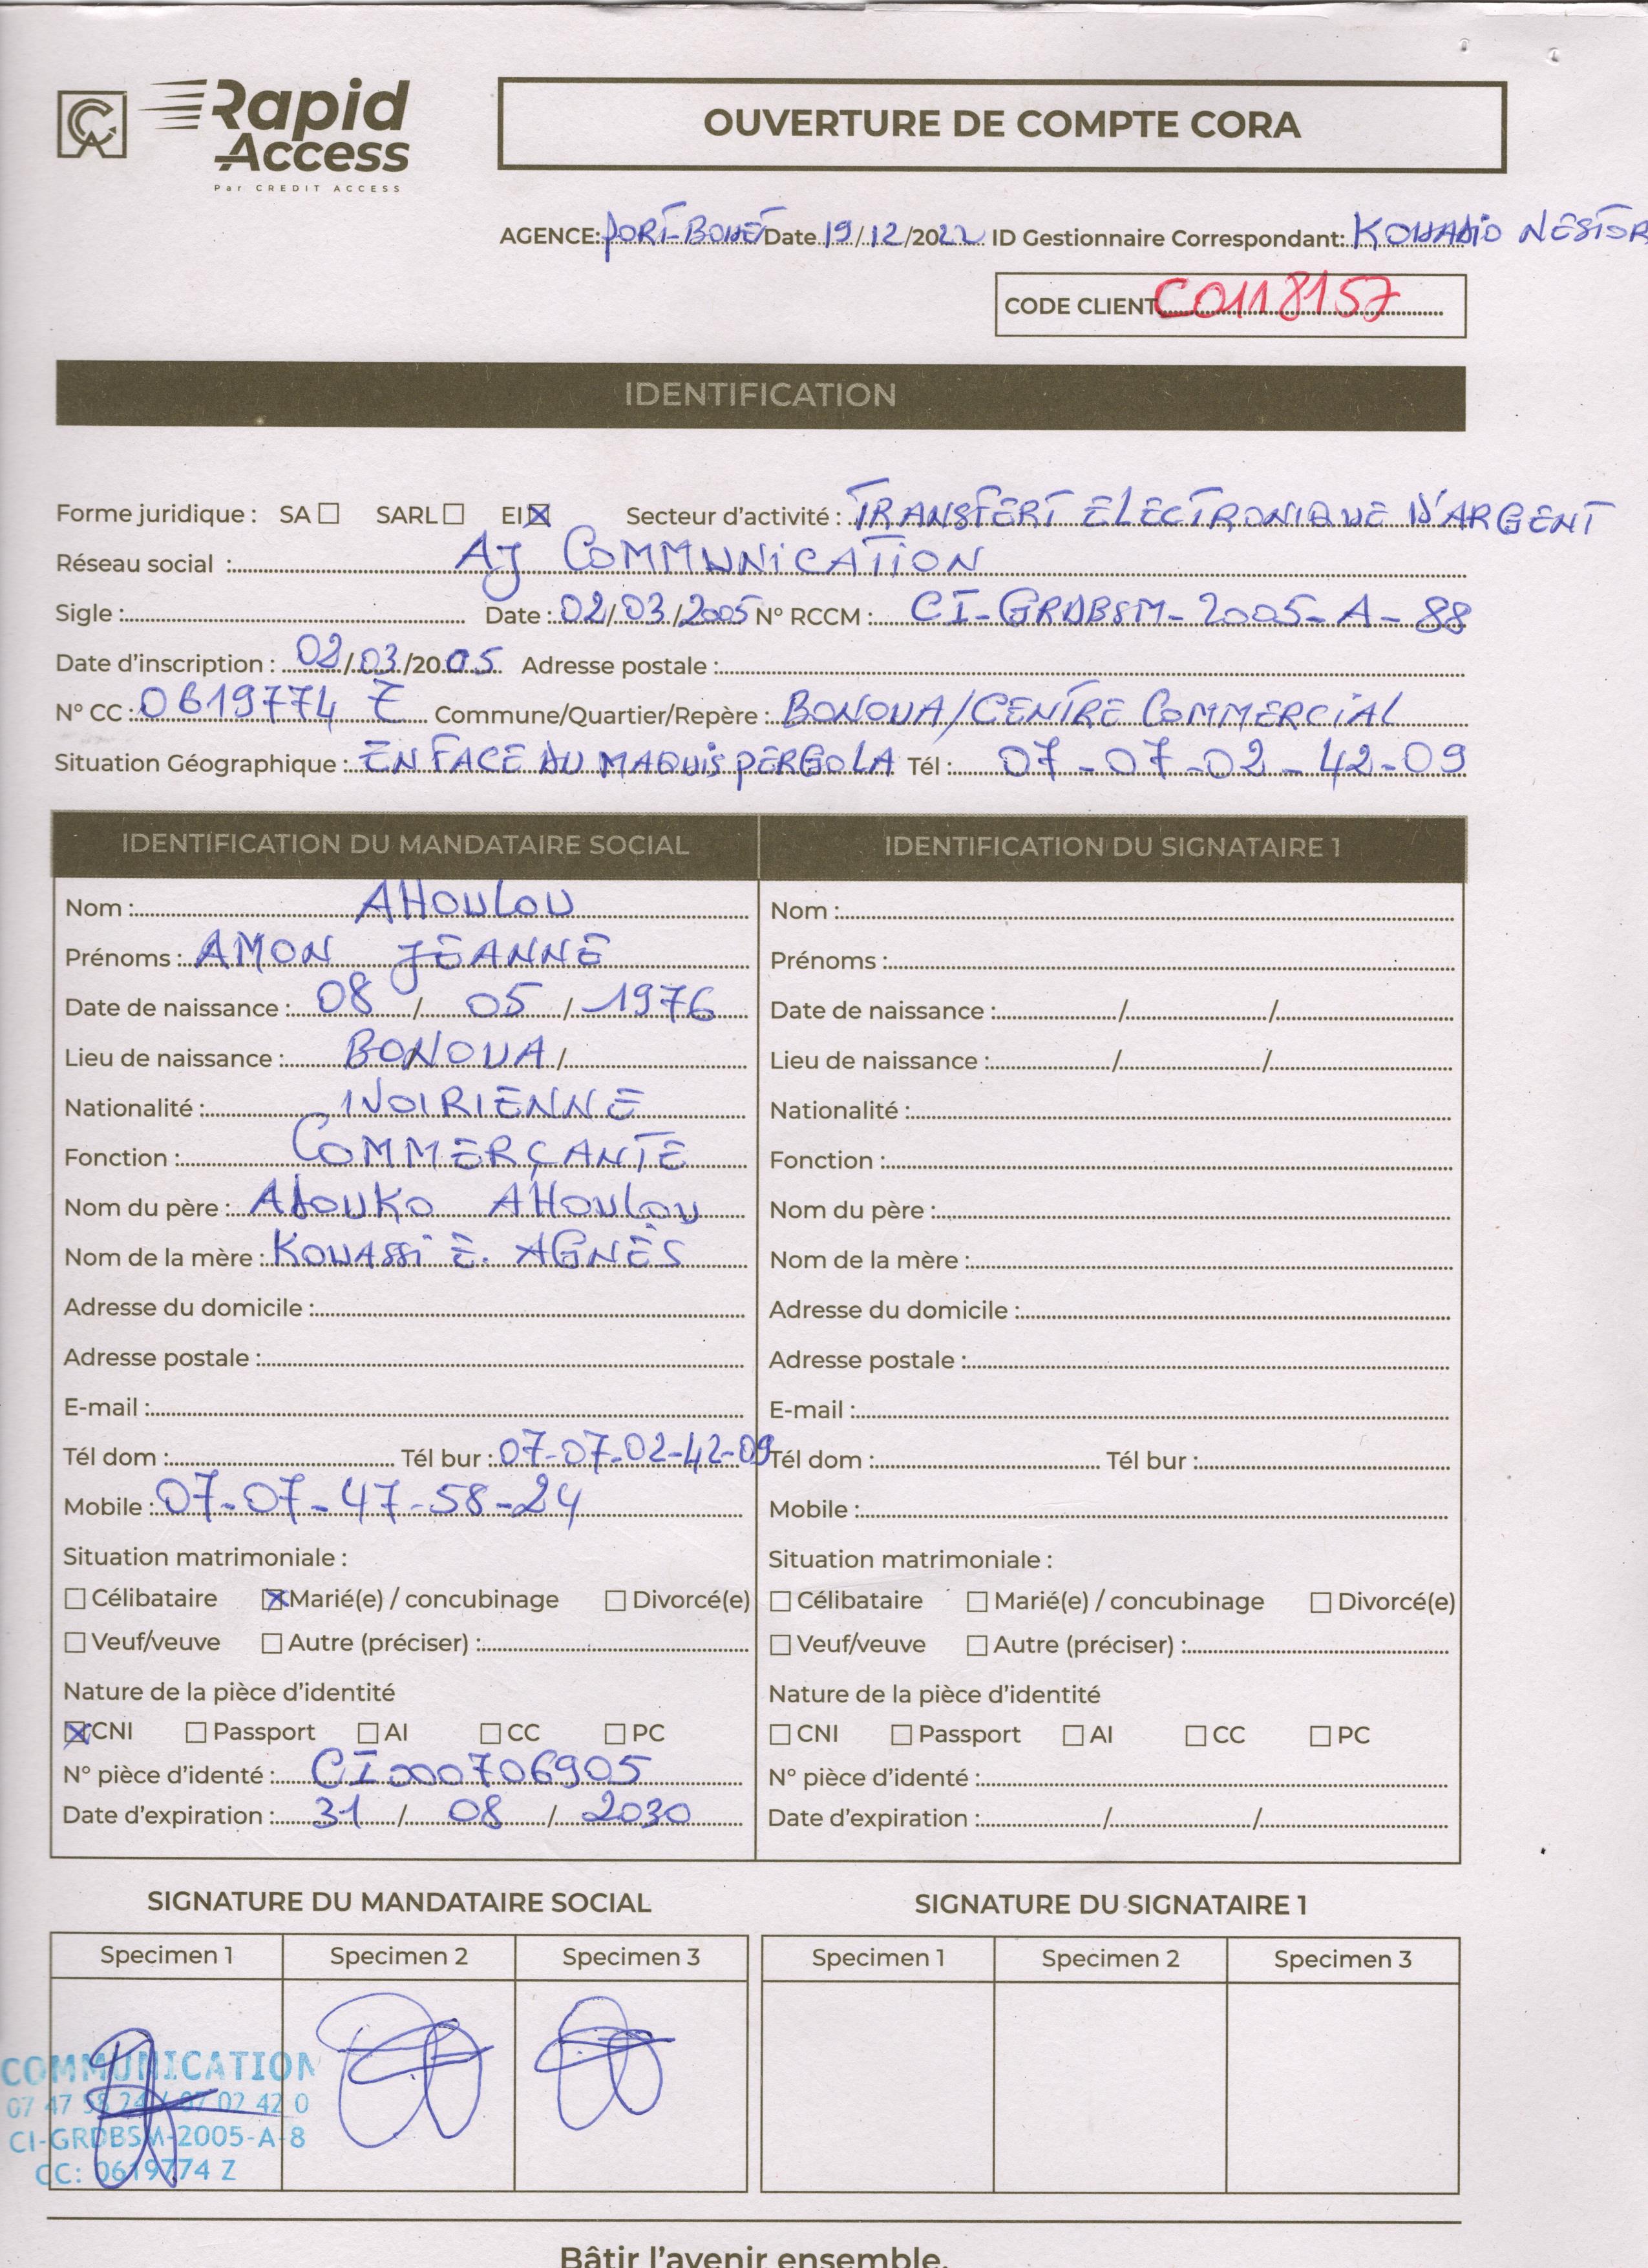 Rapid Access
Par CREDIT ACCESS
OUVERTURE DE COMPTE CORA
AGENCE: PORT-BOUËT Date 19/12/2022 ID Gestionnaire Correspondant: KOUADIO NESTOR
CODE CLIENT C0118157
IDENTIFICATION
Forme juridique : SA ☐ SARL ☐ EI ☒ Secteur d'activité : TRANSFERT ELECTRONIQUE D'ARGENT
Réseau social : AJ COMMUNICATION
Sigle : Date : 02/03/2005 N° RCCM : CI-GRDBSM-2005-A-88
Date d'inscription : 02/03/2005 Adresse postale :
N° CC : 0619774 Z Commune/Quartier/Repère : BONOUA/CENTRE COMMERCIAL
Situation Géographique : EN FACE DU MAQUIS PERGOLA Tél : 07-07-02-42-09
IDENTIFICATION DU MANDATAIRE SOCIAL
Nom : AHOULOU
Prénoms : AMON JEANNE
Date de naissance : 08 / 05 / 1976
Lieu de naissance : BONOUA /
Nationalité : IVOIRIENNE
Fonction : COMMERÇANTE
Nom du père : ADOUKO AHOULOU
Nom de la mère : KOUASSI E. AGNÈS
Adresse du domicile :
Adresse postale :
E-mail :
Tél dom : Tél bur : 07-07-02-42-09
Mobile : 07-07-47-58-24
Situation matrimoniale :
☐ Célibataire ☒ Marié(e) / concubinage ☐ Divorcé(e)
☐ Veuf/veuve ☐ Autre (préciser) :
Nature de la pièce d'identité
☒ CNI ☐ Passport ☐ AI ☐ CC ☐ PC
N° pièce d'identé : CI000706905
Date d'expiration : 31 / 08 / 2030
IDENTIFICATION DU SIGNATAIRE 1
Nom :
Prénoms :
Date de naissance : / /
Lieu de naissance : / /
Nationalité :
Fonction :
Nom du père :
Nom de la mère :
Adresse du domicile :
Adresse postale :
E-mail :
Tél dom : Tél bur :
Mobile :
Situation matrimoniale :
☐ Célibataire ☐ Marié(e) / concubinage ☐ Divorcé(e)
☐ Veuf/veuve ☐ Autre (préciser) :
Nature de la pièce d'identité
☐ CNI ☐ Passport ☐ AI ☐ CC ☐ PC
N° pièce d'identé :
Date d'expiration : / /
SIGNATURE DU MANDATAIRE SOCIAL
Specimen 1 Specimen 2 Specimen 3
COMMUNICATION
07 47 58 24 / 07 02 42 0
CI-GRDBSM-2005-A-8
CC: 0619774 Z
SIGNATURE DU SIGNATAIRE 1
Specimen 1 Specimen 2 Specimen 3
Bâtir l'avenir ensemble.